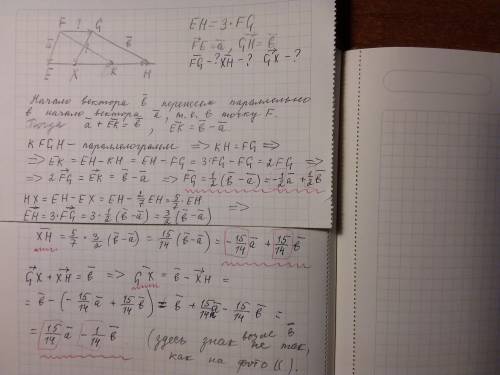 F ? G
a̅ b̅
E X K H
EH = 3·FG
F̅E̅ = a̅, G̅H̅ = b̅
F̅G̅ - ? X̅H̅ - ? G̅X̅ - ?
Начало вектора b̅ перенесем параллельно
в начало вектора a̅, т.е. в точку F.
Тогда a̅ + E̅K̅ = b̅, E̅K̅ = b̅ - a̅.
KFGH - параллелограмм => KH = FG =>
=> EK = EH - KH = EH - FG = 3·FG - FG = 2FG =>
=> 2F̅G̅ = E̅K̅ = b̅ - a̅ => F̅G̅ = 1/2 (b̅ - a̅) = -1/2 a̅ + 1/2 b̅
HX = EH - EX = EH - 2/7 EH = 5/7 · EH =>
E̅H̅ = 3·F̅G̅ = 3·1/2 (b̅ - a̅) = 3/2 (b̅ - a̅)
X̅H̅ = 5/7 · 3/2 (b̅ - a̅) = 15/14 (b̅ - a̅) = -15/14 a̅ + 15/14 b̅
G̅X̅ + X̅H̅ = b̅ => G̅X̅ = b̅ - X̅H̅ =
= b̅ - (-15/14 a̅ + 15/14 b̅) = b̅ + 15/14 a̅ - 15/14 b̅ =
= 15/14 a̅ - 1/14 b̅ (здесь знак возле b̅
не так,
как на фото (().